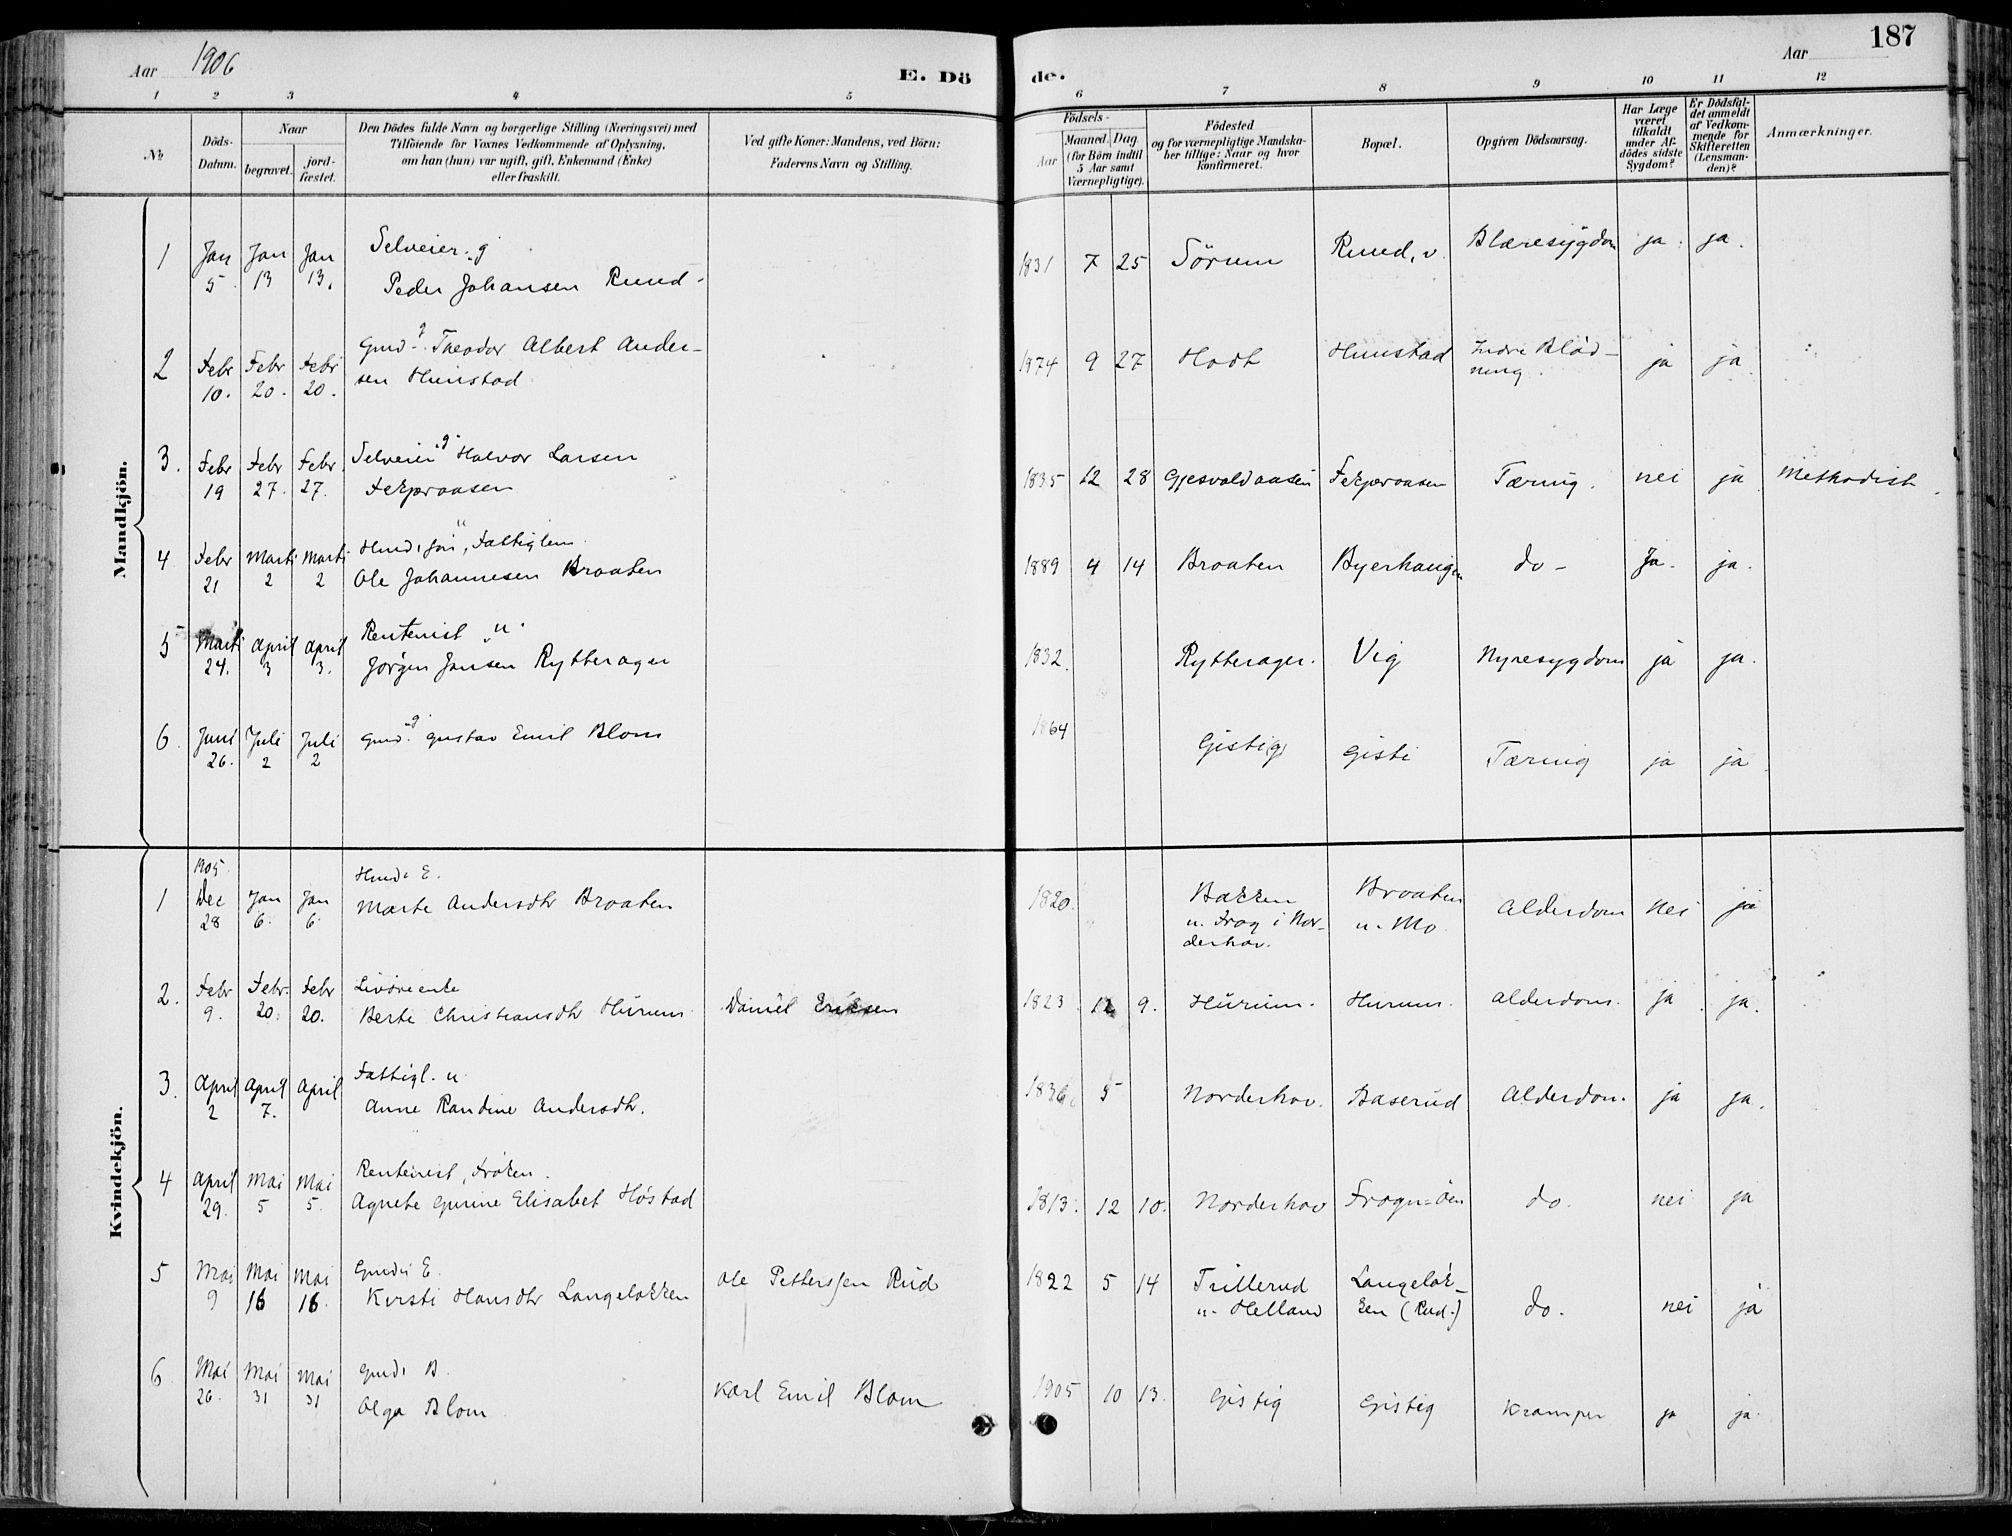 Aar 1906
E. Dö
de.
Aar
187
1 2 3 4 5
6 7 8 9 10 11 12
№
Döds-
Datum.
Naar
begravet.
jord-
fæstet.
Den Dödes fulde Navn og borgerlige Stilling (Næringsvei) med
Tilföiende for Voxnes Vedkommende af Oplysning,
om han (hun) var ugift, gift, Enkemand (Enke)
eller fraskilt.
Ved gifte Koner: Mandens, ved Börn:
Faderens Navn og Stilling.
Födsels-
Aar
Maaned. Dag
(for Börn indtil
5 Aar samt
Værnepligtige).
Födested
og for værnepligtige Mandska-
ber tillige: Naar og hvor
konfirmeret.
Bopæl.
Opgiven Dödsaarsag.
Har Læge
været
tilkaldt
under Af-
dödes sidste
Sygdom?
Er Dödsfal-
det anmeldt
af Vedkom-
mende for
Skifteretten
(Lensman-
den)?
Anmærkninger.
Mandkjön.
1 Jan 5. Jan 13 Jan 13. Selveier g.
Peder Johansen Ruud
1831 7 25 Sörum Ruud, v. Blæresygdom ja. ja.
2 Febr 10. Febr 20. Febr 20. Gmd. g. Theodor Albert Ander-
sen Hunstad
1874 9 27 Hodt Hunstad Indre Blöd-
ning. ja ja
3. Febr 19 Febr 27. Febr 27. Selveier g. Halvor Larsen
Fekjøraasen
1835 12 28 Gjesvoldaasen Fekjøraasen Tæring. nei ja Methodist.
4. Febr 21 Marti 2 Marti 2 Fattiglem
Ole Johannesen Braaten
1889 4 14 Braaten Byerhaugen do- Ja. ja.
5 Marti 24. April 3 April 3. Rentenist u.
Jørgen Jansen Rytterager
1832. Rytterager. Vig Nyresygdom ja ja.
6. Juni 26. Juli 2 Juli 2 Gmd. g. Gustav Emil Blom
1864 Gistig Gisti Tæring ja ja
Kvindekjön.
1 1905 Dec 28 Jan 6. Jan 6. Husm. E.
Marte Andersdtr Braaten
1820. Bakken
u. Frog i Nor-
derhov. Braaten
u. Mo. Alderdom nei ja
2. Febr 9. Febr. 20. Febr 20. Livøreente
Berte Christiansdtr Hurum Daniel Eriksen
1823 12 9. Hurum. Hurum. Alderdom. ja ja.
3. April 2 April 7. April Fattigl. u.
Anne Randine Andersdtr.
1836 5 Norderhov. Baserud Alderdom. ja ja.
4 April 29. Mai 5 Mai 5. Rentenist, Frøken.
Agnete Gurine Elisabet Høstad
1813. 12 10. Norderhov Frogn-øen do. nei ja
5 Mai 9 Mai 16 Mai 16. Gmds E.
Kirsti Hansdtr Langeløkken Ole Petterssen Rud
1822 5 14 Trillerud
u. Helland Langeløk-
ken (Rud.) do. nei ja
6. Mai 26. Mai 31 Mai 31 Gmds B.
Olga Blom Karl Emil Blom
1905 10 13. Gistig Gistig Kramper ja ja.